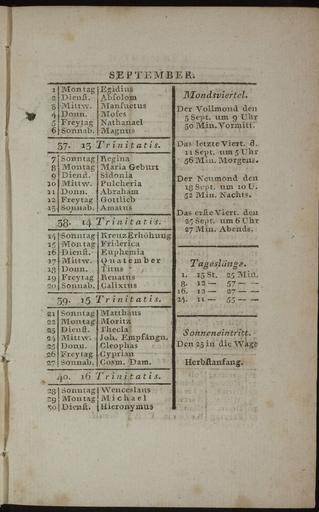 SEPTEMBER.
1 Montag Egidius
2 Dienst. Absolom
3 Mittw. Mansuetus
4 Donn. Moses
5 Freytag Nathanael
6 Sonnab. Magnus
37. 13 Trinitatis.
7 Sonntag Regina
8 Montag Maria Geburt
9 Dienst. Sidonia
10 Mittw. Pulcheria
11 Donn. Abraham
12 Freytag Gottlieb
13 Sonnab. Amatus
38. 14 Trinitatis.
14 Sonntag Kreuz Erhöhung
15 Montag Friderica
16 Dienst. Euphemia
17 Mittw. Quatember
18 Donn. Titus
19 Freytag Renatus
20 Sonnab. Calixtus
39. 15 Trinitatis.
21 Sonntag Matthäus
22 Montag Moritz
23 Dienst. Thecla
24 Mittw. Joh. Empfängn.
25 Donn. Cleophas
26 Freytag Cyprian
27 Sonnab. Cosm. Dam.
40. 16 Trinitatis.
28 Sonntag Wenceslaus
29 Montag Michael
30 Dienst. Hieronymus
Mondsviertel.
Der Vollmond den
3 Sept. um 9 Uhr
50 Min. Vormitt.
Das letzte Viert. d.
11 Sept. um 5 Uhr
56 Min. Morgens.
Der Neumond den
18 Sept. um 10 U.
52 Min. Nachts.
Das erste Viert. den
25 Sept. um 6 Uhr
27 Min. Abends.
Tageslänge.
1. 13 St. 25 Min.
8. 12 — 57 — —
16. 12 — 27 — —
24. 11 — 55 — —
Sonneneintritt.
Den 23 in die Wage
Herbstanfang.